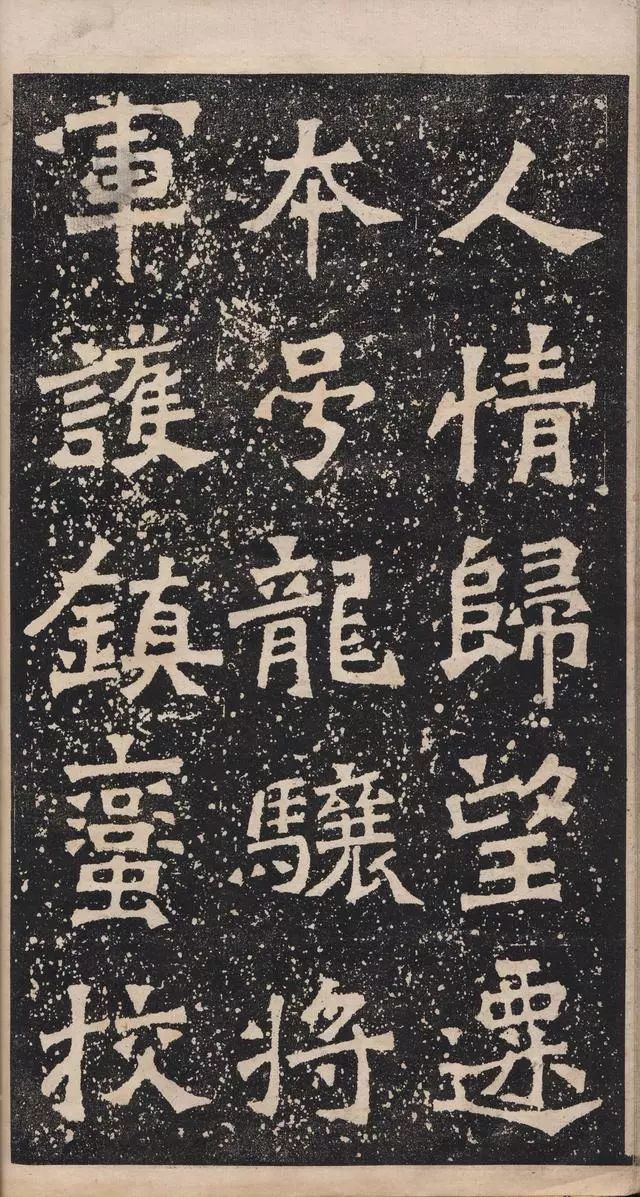 人情歸望遷
本号龍驤將
軍護鎮蠻挍